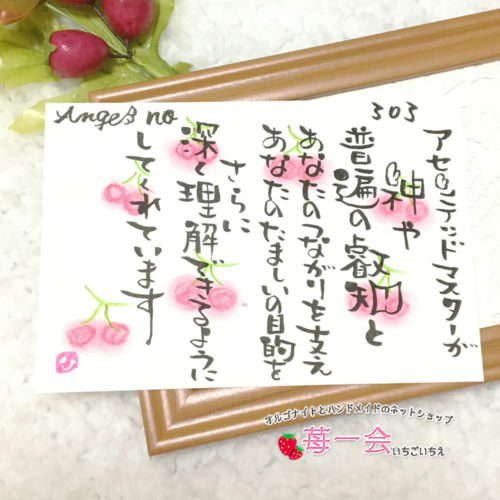 Angel no 303
アセンデッドマスターが
神や
普遍の叡知と
あなたのつながりを支え
あなたのたましいの目的を
さらに
深く理解できるように
してくれています
オルゴナイトとハンドメイドのネットショップ
苺一会いちごいちえ